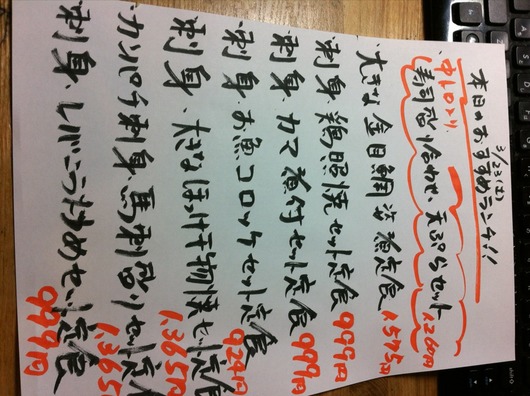 3/23(土)
本日のおすすめランチ!!
中トロ入り
寿司盛り合わせ、天ぷらセット 1,260円
大きな金目鯛姿煮定食 1,575円
刺身、鶏照焼セット定食 999円
刺身、カマ煮付セット定食 999円
刺身、お魚コロッケセット定食 924円
刺身、大きなほっけ干物焼セット定食 1,365円
カンパチ刺身、馬刺盛りセット定食 1,365円
刺身、レバニラ炒めセット定食 999円